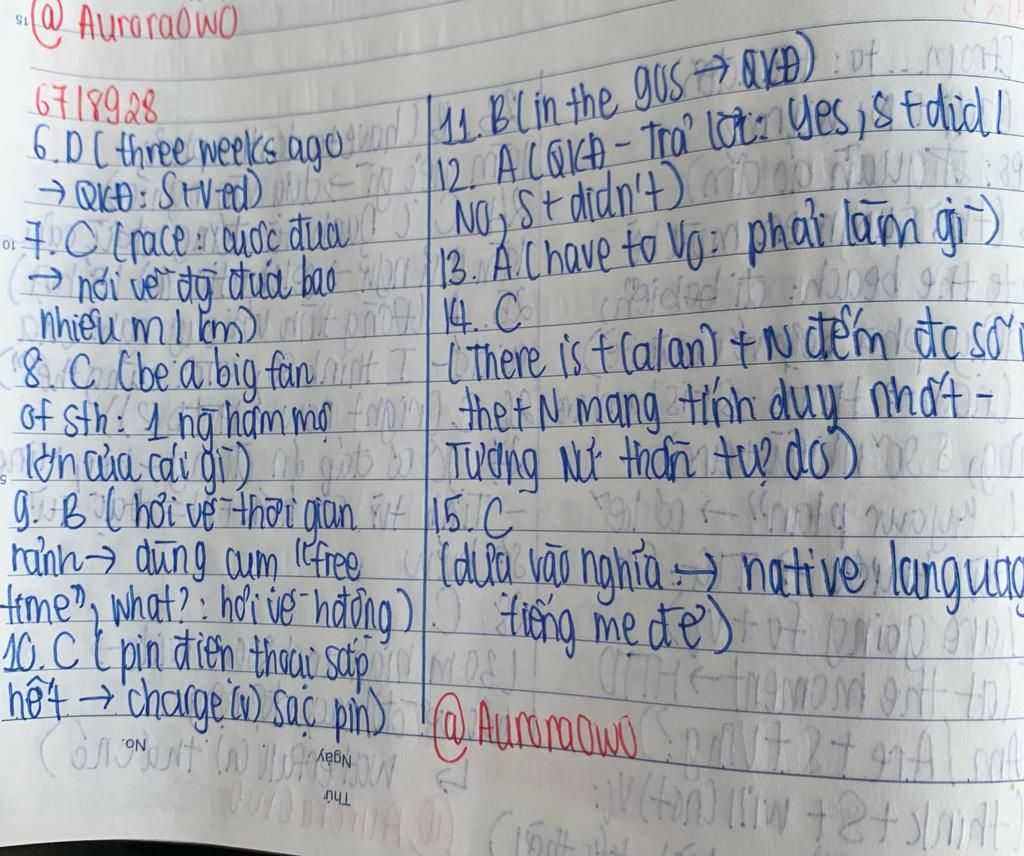 @ AuroraOwO
6718928
6. D ( three weeks ago
→ QKĐ : S+V-ed)
7. C (race : cuộc đua
→ nói về đg đua bao
nhiêu m / km)
8. C (be a big fan
of sth : 1 ng hâm mộ
lớn của cái gì)
9. B ( hỏi về thời gian
rảnh → dùng cụm "free
time", What? : hỏi về h.động)
10. C ( pin điện thoại sắp
hết → charge (v) sạc pin)
11. B( in the 90s → QKĐ)
12. A (QKĐ - Trả lời : Yes, S + did /
No, S + didn't)
13. A (have to V0 : phải làm gì)
14. C
( There is + (a/an) + N đếm đc số
the + N mang tính duy nhất -
Tượng Nữ thần tự do)
15. C
(dựa vào nghĩa → native languag
tiếng mẹ đẻ)
@ AuroraOwO
15
10
5
No.
Ngày
Thứ